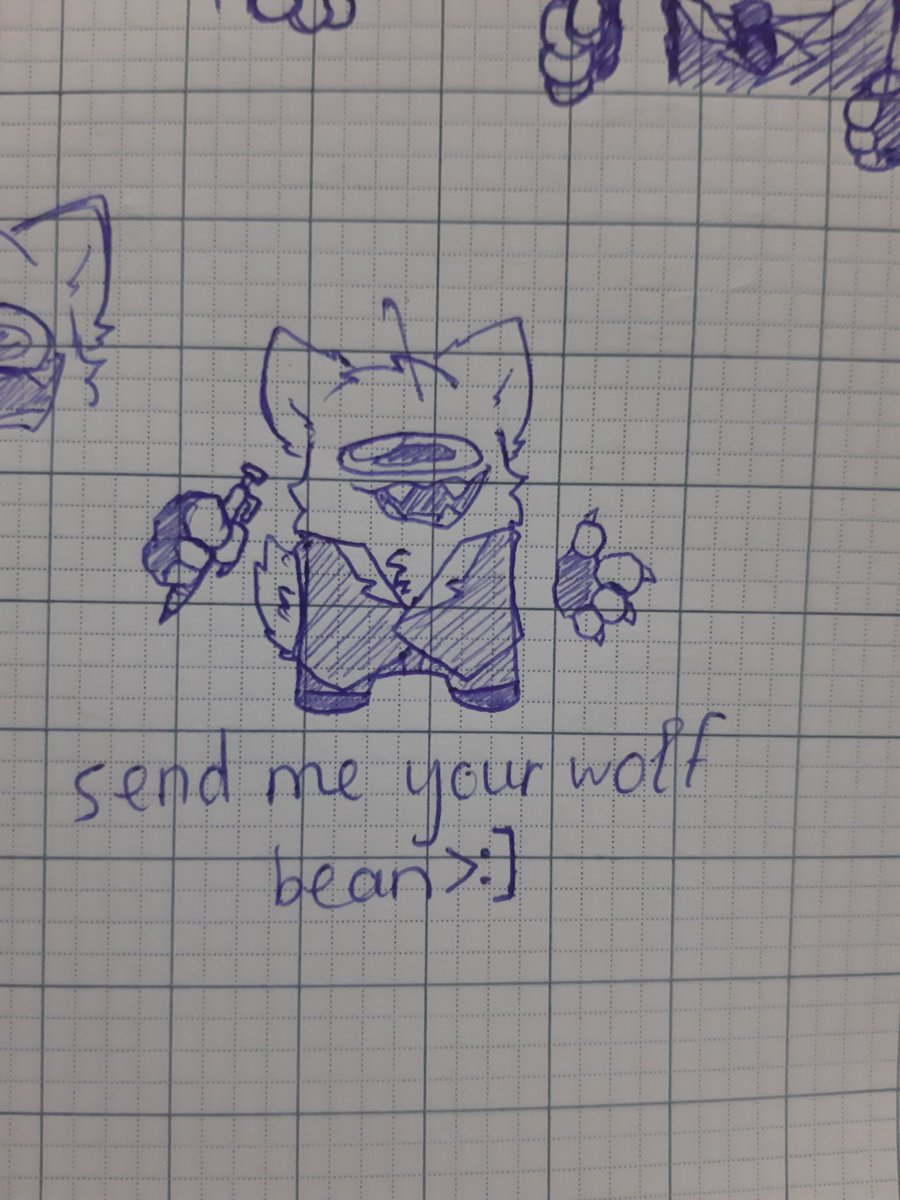 send me your wolf
bean >:]